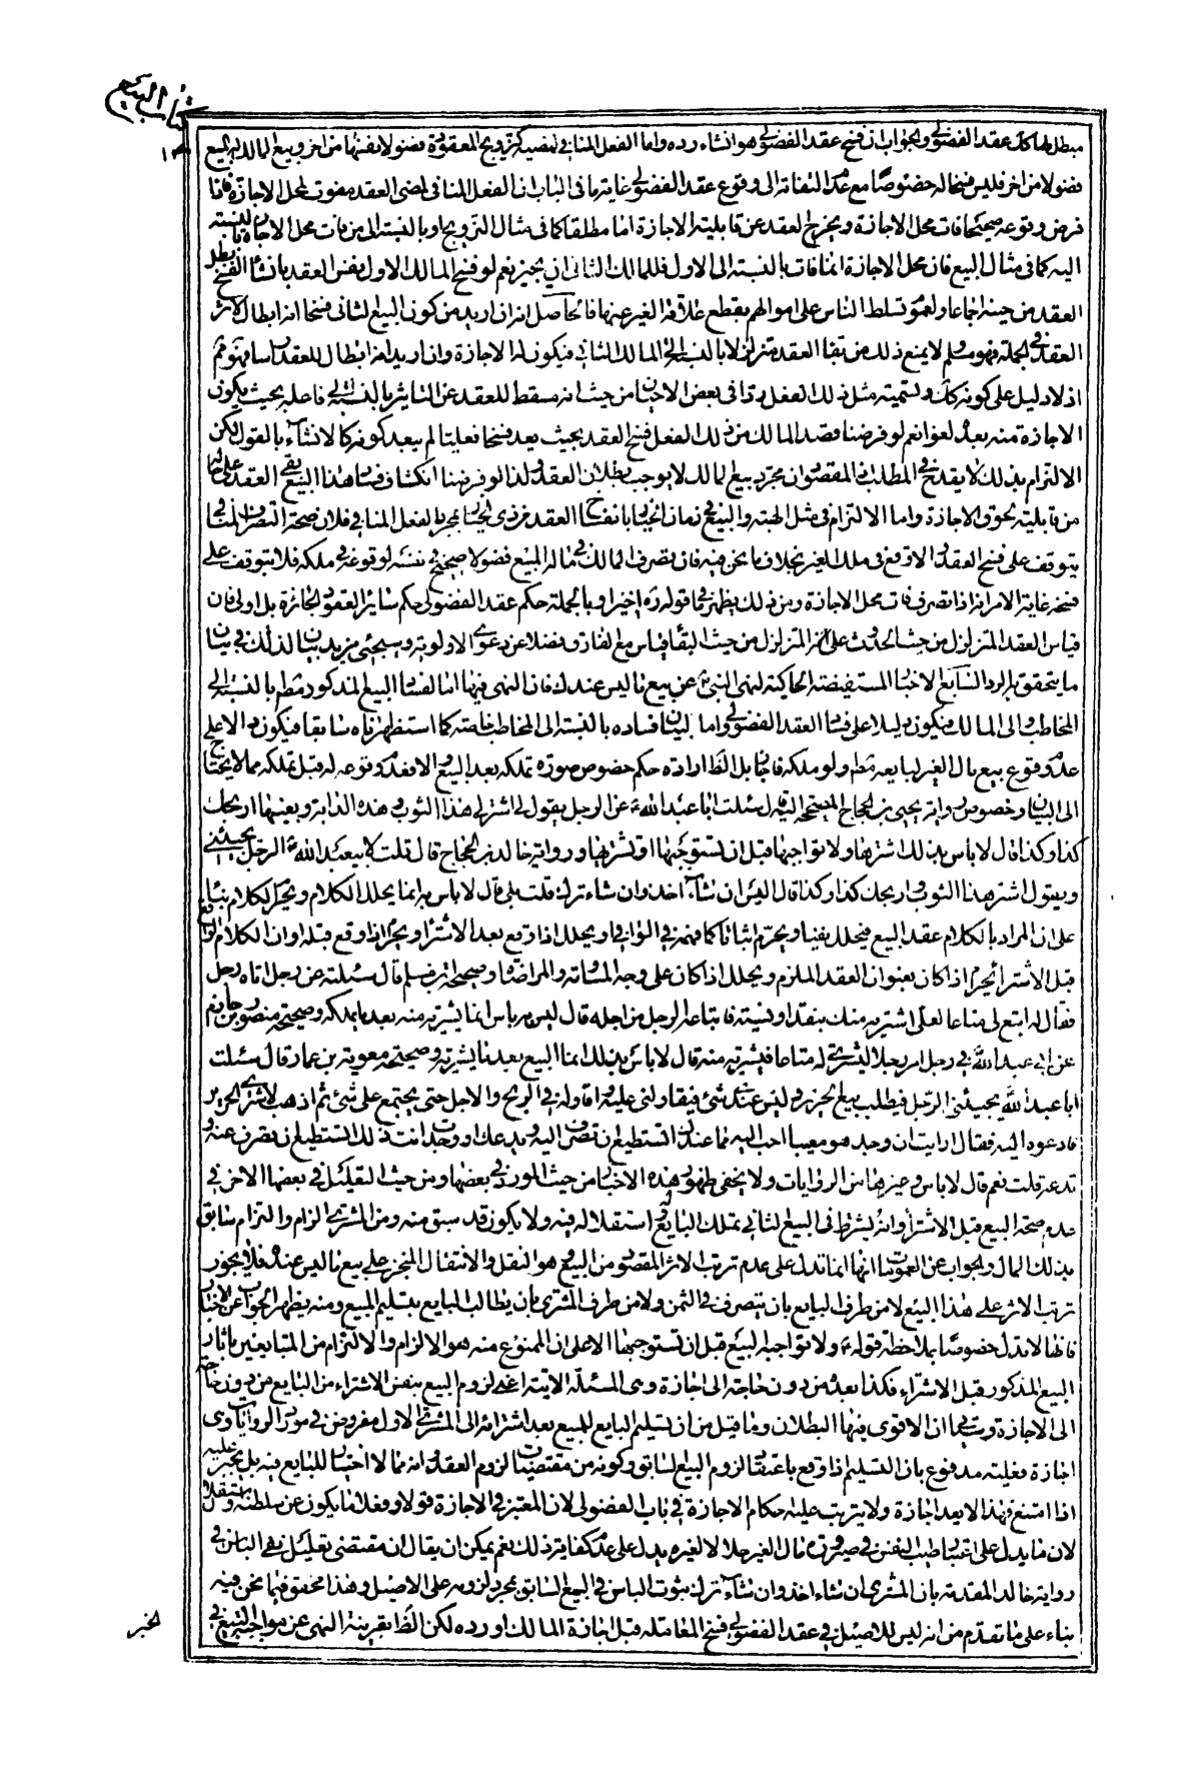 كتاب البيع
١٣٨
مبطل لها كك عقد الفضولي والجواب ان فسخ عقد الفضولي هو انشاء رده واما الفعل المنافي لمضيه كتزويج المعقودة فضولا نفسها من اخر وبيع المالك ماله المبيع
فضولا من اخر فليس فسخا له خصوصا مع عدم التفاته الى وقوع عقد الفضولي غاية ما في الباب ان الفعل المنافي لمضى العقد مفوت لمحل الاجازة فاذا
فرض وقوعه صحيحا فات محل الاجازة ويخرج العقد عن قابلية الاجازة اما مطلقا كما في مثال التزويج او بالنسبة الى من فات محل الاجازة بالنسبة
اليه كما في مثال البيع فان محل الاجازة انما فات بالنسبة الى الاول فللمالك الثاني ان يجيز نعم لو فسخ المالك الاول نفس العقد بانشاء الفسخ بطل
العقد من حينه اجماعا ولعموم تسلط الناس على اموالهم بقطع علاقة الغير عنها فالحاصل انه ان اريد من كون البيع الثاني فسخا انه ابطال لاثر
العقد في الجملة فهو مسلم ولا يمنع ذلك من بقاء العقد متزلزلا بالنسبة الى المالك الثاني فيكون له الاجازة وان اريد انه ابطال للعقد راسا فهو ممنوع
اذ لا دليل على كونه كك وتسمية مثل ذلك الفعل ردا في بعض الاحيان من حيث انه مسقط للعقد عن التاثير بالنسبة الى فاعله بحيث يكون
الاجازة منه بعده لغوا نعم لو فرضنا قصد المالك من ذلك الفعل فسخ العقد بحيث يعد فسخا فعليا لم يبعد كونه كالانشاء بالقول لكن
الالتزام بذلك لا يقدح في المطلب اذ المقصود ان مجرد بيع المالك لا يوجب بطلان العقد ولذا لو فرضنا انكشاف فساد هذا البيع بقى العقد على حاله
من قابلية لحوق الاجازة واما الالتزام في مثل الهبة والبيع في زمان الخيار بانفساخ العقد من ذي الخيار بمجرد الفعل المنافي فلان صحة التصرف المنافي
يتوقف على فسخ العقد والا وقع في ملك الغير بخلاف ما نحن فيه فان تصرف المالك في ماله المبيع فضولا صحيح في نفسه لوقوعه في ملكه فلا يتوقف على
فسخه غاية الامر انه اذا تصرف فات محل الاجازة ومن ذلك يظهر ما في قوله ره اخيرا وبالجملة حكم عقد الفضولي حكم سائر العقود الجائزة بل اولى فان
قياس العقد المتزلزل من حيث الحدوث على المتزلزل من حيث البقاء قياس مع الفارق فضلا عن دعوى الاولوية وسيجئ مزيد بيان لذلك في بيان
ما يتحقق به الرد السابع الاخبار المستفيضة الحاكية لنهى النبي ص عن بيع ما ليس عندك فان النهى فيها اما لفساد البيع المذكور مطم بالنسبة الى
المخاطب والى المالك فيكون دليلا على فساد العقد الفضولي واما لبيان فساده بالنسبة الى المخاطب خاصة كما استظهرناه سابقا فيكون دالا على
عدم وقوع بيع مال الغير لبايعه مطم ولو ملكه فاجاز بل الظ ارادة حكم خصوص صورة تملكه بعد البيع والا فعدم وقوعه له قبل تملكه مما لا يحتاج
الى البيان وخصوص رواية يحيى بن الحجاج المصححة اليه قال سئلت ابا عبد الله ع عن الرجل يقول لي اشتر لي هذا الثوب وهذه الدابة وبعنيها اربحك
كذا وكذا قال لا باس بذلك اشترها ولا تواجبها قبل ان تستوجبها او تشتريها ورواية خالد بن الحجاج قال قلت لابيعبد الله ع الرجل يجيئني
ويقول اشتر هذا الثوب واربحك كذا وكذا قال اليس ان شاء اخذ وان شاء ترك قلت بلى قال لا باس به انما يحلل الكلام ويحرم الكلام بناء
على ان المراد بالكلام عقد البيع فيحلل نفيا ويحرم اثباتا كما فهمه في الوافي او يحلل اذا وقع بعد الاشتراء ويحرم اذا وقع قبله او ان الكلام الواقع
قبل الاشتراء يحرم اذا كان بعنوان العقد الملزم ويحلل اذا كان على وجه المساومة والمراضاة وصحيحة ابن مسلم قال سئلته عن رجل اتاه رجل
فقال له ابتع لي متاعا لعلى اشتريه منك بنقد او نسية فابتاعه الرجل من اجله قال ليس به باس انما يشتريه منه بعد ما يملكه وصحيحة منصور بن حازم
عن ابي عبد الله ع في رجل امر رجلا ليشتري له متاعا فيشتريه منه قال لا باس بذلك انما البيع بعد ما يشتريه وصحيحة معوية بن عمار قال سئلت
ابا عبد الله ع يجيئني الرجل فيطلب بيع الحرير وليس عندي شئ فيقاولني عليه واقاوله في الربح والاجل حتى يجتمع على شئ ثم اذهب لاشتري الحرير
فادعوه اليه فقال ارايت ان وجد هو مبيعا احب اليه مما عندك ايستطيع ان ينصرف اليه ويدعك او وجدت انت ذلك اتستطيع ان تنصرف عنه و
تدعه قلت نعم قال لا باس وغيرها من الروايات ولا يخفى ظهور هذه الاخبار من حيث المورد في بعضها ومن حيث التعليل في بعضها الاخر في
عدم صحة البيع قبل الاشتراء وانه يشترط في البيع الثاني تملك البايع له استقلاله فيه ولا يكون قد سبق منه ومن المشتري الزام والتزام سابق
بذلك المال والجواب عن العمومات انها انما تدل على عدم ترتب الاثر المقصود من البيع وهو النقل والانتقال المنجز على بيع ما ليس عنده فلا يجوز
ترتب الاثر على هذا البيع لا من طرف البايع بان يتصرف في الثمن ولا من طرف المشتري بان يطالب البايع بتسليم المبيع ومنه يظهر الجواب عن الاخبار
فانها لا تدل خصوصا بملاحظة قوله ع ولا تواجبه البيع قبل ان تستوجبها الا على ان الممنوع منه هو الالزام والالتزام من المتبايعين باثار
البيع المذكور قبل الاشتراء فكذا بعده من دون حاجة الى اجازة وهى المسئلة الاتية اعنى لزوم البيع بنفس الاشتراء من البايع من دون حاجة
الى الاجازة وسياتي ان الاقوى فيها البطلان وما قيل من ان تسليم البايع للمبيع بعد اشترائه الى المشتري الاول مفروض في مورد الروايات وهى
اجازة فعلية مدفوع بان التسليم اذا وقع باعتقاد لزوم البيع السابق وكونه من مقتضيات لزوم العقد وانه مما لا اختيار للبايع فيه بل يجبر عليه
اذا امتنع فهذا لا يعد اجازة ولا يترتب عليه احكام الاجازة في باب الفضولي لان المعتبر في الاجازة قولا وفعلا ما يكون عن سلطنة واستقلال
لان ما يدل على اعتبار طيب النفس في صيرورة مال الغير حلالا لغيره يدل على عدم كفاية ذلك نعم يمكن ان يقال ان مقتضى تعليل نفى الباس في
رواية خالد المتقدمة بان المشتري ان شاء اخذ وان شاء ترك ثبوت الباس في البيع السابق بمجرد لزومه على الاصيل وهذا محقق فيما نحن فيه
بناء على ما تقدم من انه ليس للاصيل في عقد الفضولي فسخ المعاملة قبل اجازة المالك او رده لكن الظ بقرينة النهى عن مواجبة البيع في
الخبر